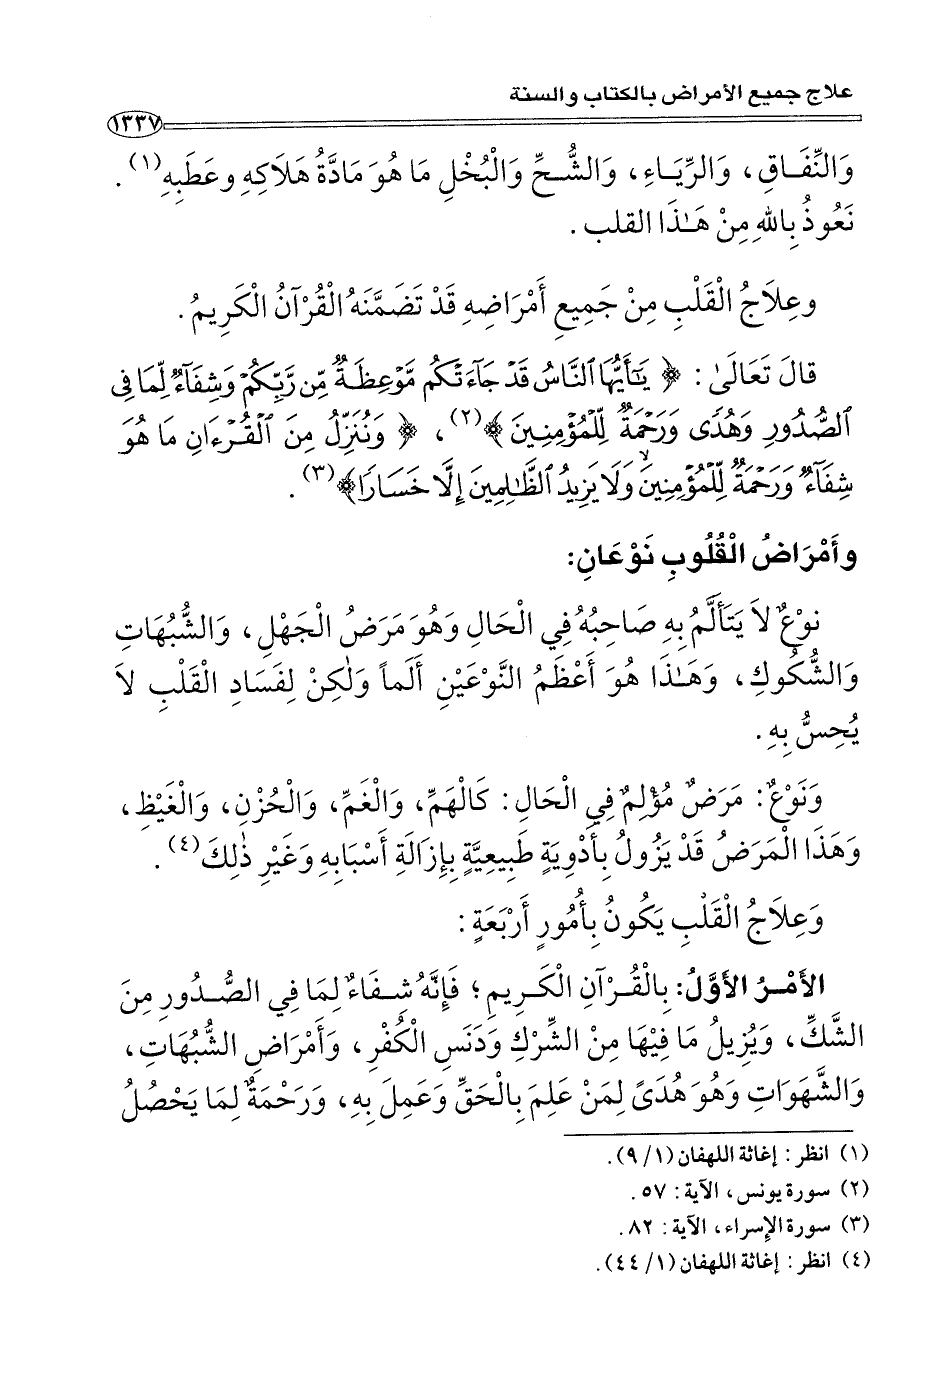 علاج جميع الأمراض بالكتاب والسنة
١٣٣٧
وَالنِّفَاقِ، وَالرِّيَاءِ، وَالشُّحِّ وَالْبُخْلِ مَا هُوَ مَادَّةُ هَلَاكِهِ وعَطَبِهِ(١).
نَعُوذُ بِاللهِ مِنْ هَـٰذَا القلب.
وعِلَاجُ الْقَلْبِ مِنْ جَمِيعِ أَمْرَاضِهِ قَدْ تَضَمَّنَهُ الْقُرْآنُ الْكَرِيمُ.
قالَ تَعَالَىٰ: ﴿ يَـٰٓأَيُّهَا ٱلنَّاسُ قَدْ جَآءَتْكُم مَّوْعِظَةٌ مِّن رَّبِّكُمْ وَشِفَآءٌ لِّمَا فِى
ٱلصُّدُورِ وَهُدًى وَرَحْمَةٌ لِّلْمُؤْمِنِينَ ﴾(٢)، ﴿ وَنُنَزِّلُ مِنَ ٱلْقُرْءَانِ مَا هُوَ
شِفَآءٌ وَرَحْمَةٌ لِّلْمُؤْمِنِينَۙ وَلَا يَزِيدُ ٱلظَّـٰلِمِينَ إِلَّا خَسَارًا﴾(٣).
وأَمْرَاضُ الْقُلُوبِ نَوْعَانِ:
نوْعٌ لاَ يَتَأَلَّمُ بِهِ صَاحِبُهُ فِي الْحَالِ وَهُوَ مَرَضُ الْجَهْلِ، وَالشُّبُهَاتِ
وَالشُّكُوكِ، وَهَـٰذَا هُوَ أَعْظَمُ النَّوْعَيْنِ أَلَماً وَلَٰكِنْ لِفَسَادِ الْقَلْبِ لاَ
يُحِسُّ بِهِ.
وَنَوْعٌ: مَرَضٌ مُؤْلِمٌ فِي الْحَالِ: كَالْهَمِّ، وَالْغَمِّ، وَالْحُزْنِ، وَالْغَيْظِ،
وَهَذَا الْمَرَضُ قَدْ يَزُولُ بِأَدْوِيَةٍ طَبِيعِيَّةٍ بِإِزَالَةِ أَسْبَابِهِ وَغَيْرِ ذٰلِكَ(٤).
وَعِلاَجُ الْقَلْبِ يَكُونُ بِأُمُورٍ أَرْبَعَةٍ:
الأَمْرُ الأَوَّلُ: بِالْقُرْآنِ الْكَرِيمِ؛ فَإِنَّهُ شِفَاءٌ لِمَا فِي الصُّدُورِ مِنَ
الشَّكِّ، وَيُزِيلُ مَا فِيْهَا مِنْ الشِّرْكِ وَدَنَسِ الْكُفْرِ، وَأَمْرَاضِ الشُّبُهَاتِ،
وَالشَّهَوَاتِ وَهُوَ هُدَىً لِمَنْ عَلِمَ بِالْحَقِّ وَعَمِلَ بِهِ، وَرَحْمَةٌ لِمَا يَحْصُلُ
(١) انظر: إغاثة اللهفان (١/ ٩).
(٢) سورة يونس، الآية: ٥٧.
(٣) سورة الإسراء، الآية: ٨٢.
(٤) انظر: إغاثة اللهفان (١/ ٤٤).